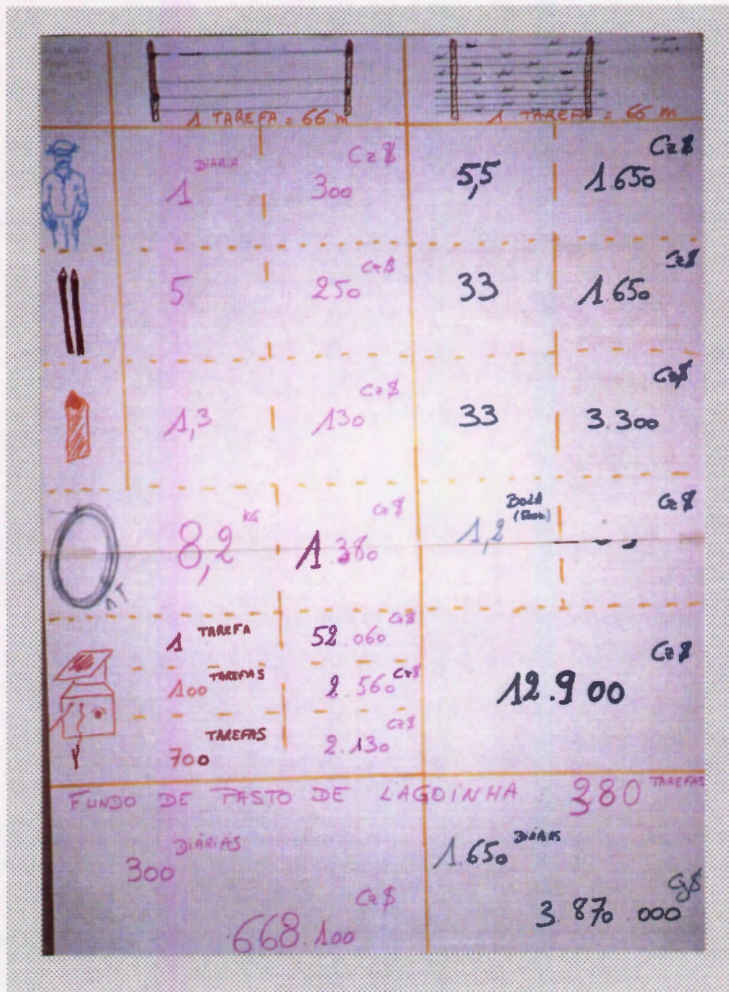 1 TAREFA = 66 m 1 TAREFA = 66 m
1 DIARIA 300 Cz$ 5,5 1.650 Cz$
5 250 Cz$ 33 1.650 Cz$
1,3 130 Cz$ 33 3.300 Cz$
8,2 KG 1.380 Cz$ 1,2 BOLA Cz$
1 TAREFA 52.060 Cz$
100 TAREFAS 2.560 Cz$ 12.900 Cz$
700 TAREFAS 2.130 Cz$
FUNDO DE PASTO DE LAGOINHA : 380 TAREFAS
300 DIÁRIAS 1.650 DIÁRIAS
668.100 Cz$ 3.870.000 Cz$